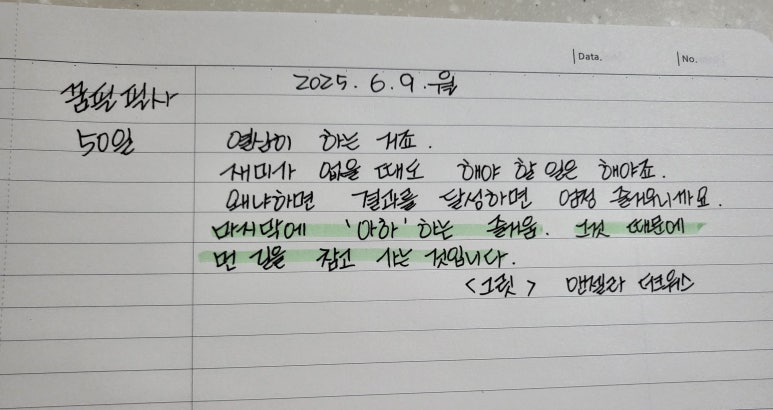 Data.
No.
2025. 6. 9. 월
꿈필 필사
50일
열심히 하는 거죠.
재미가 없을 때도 해야 할 일은 해야죠.
왜냐하면 결과를 달성하면 엄청 즐거우니까요.
마지막에 '아하' 하는 즐거움. 그것 때문에
먼 길을 참고 가는 것입니다.
<그릿> 앤젤라 더크워스